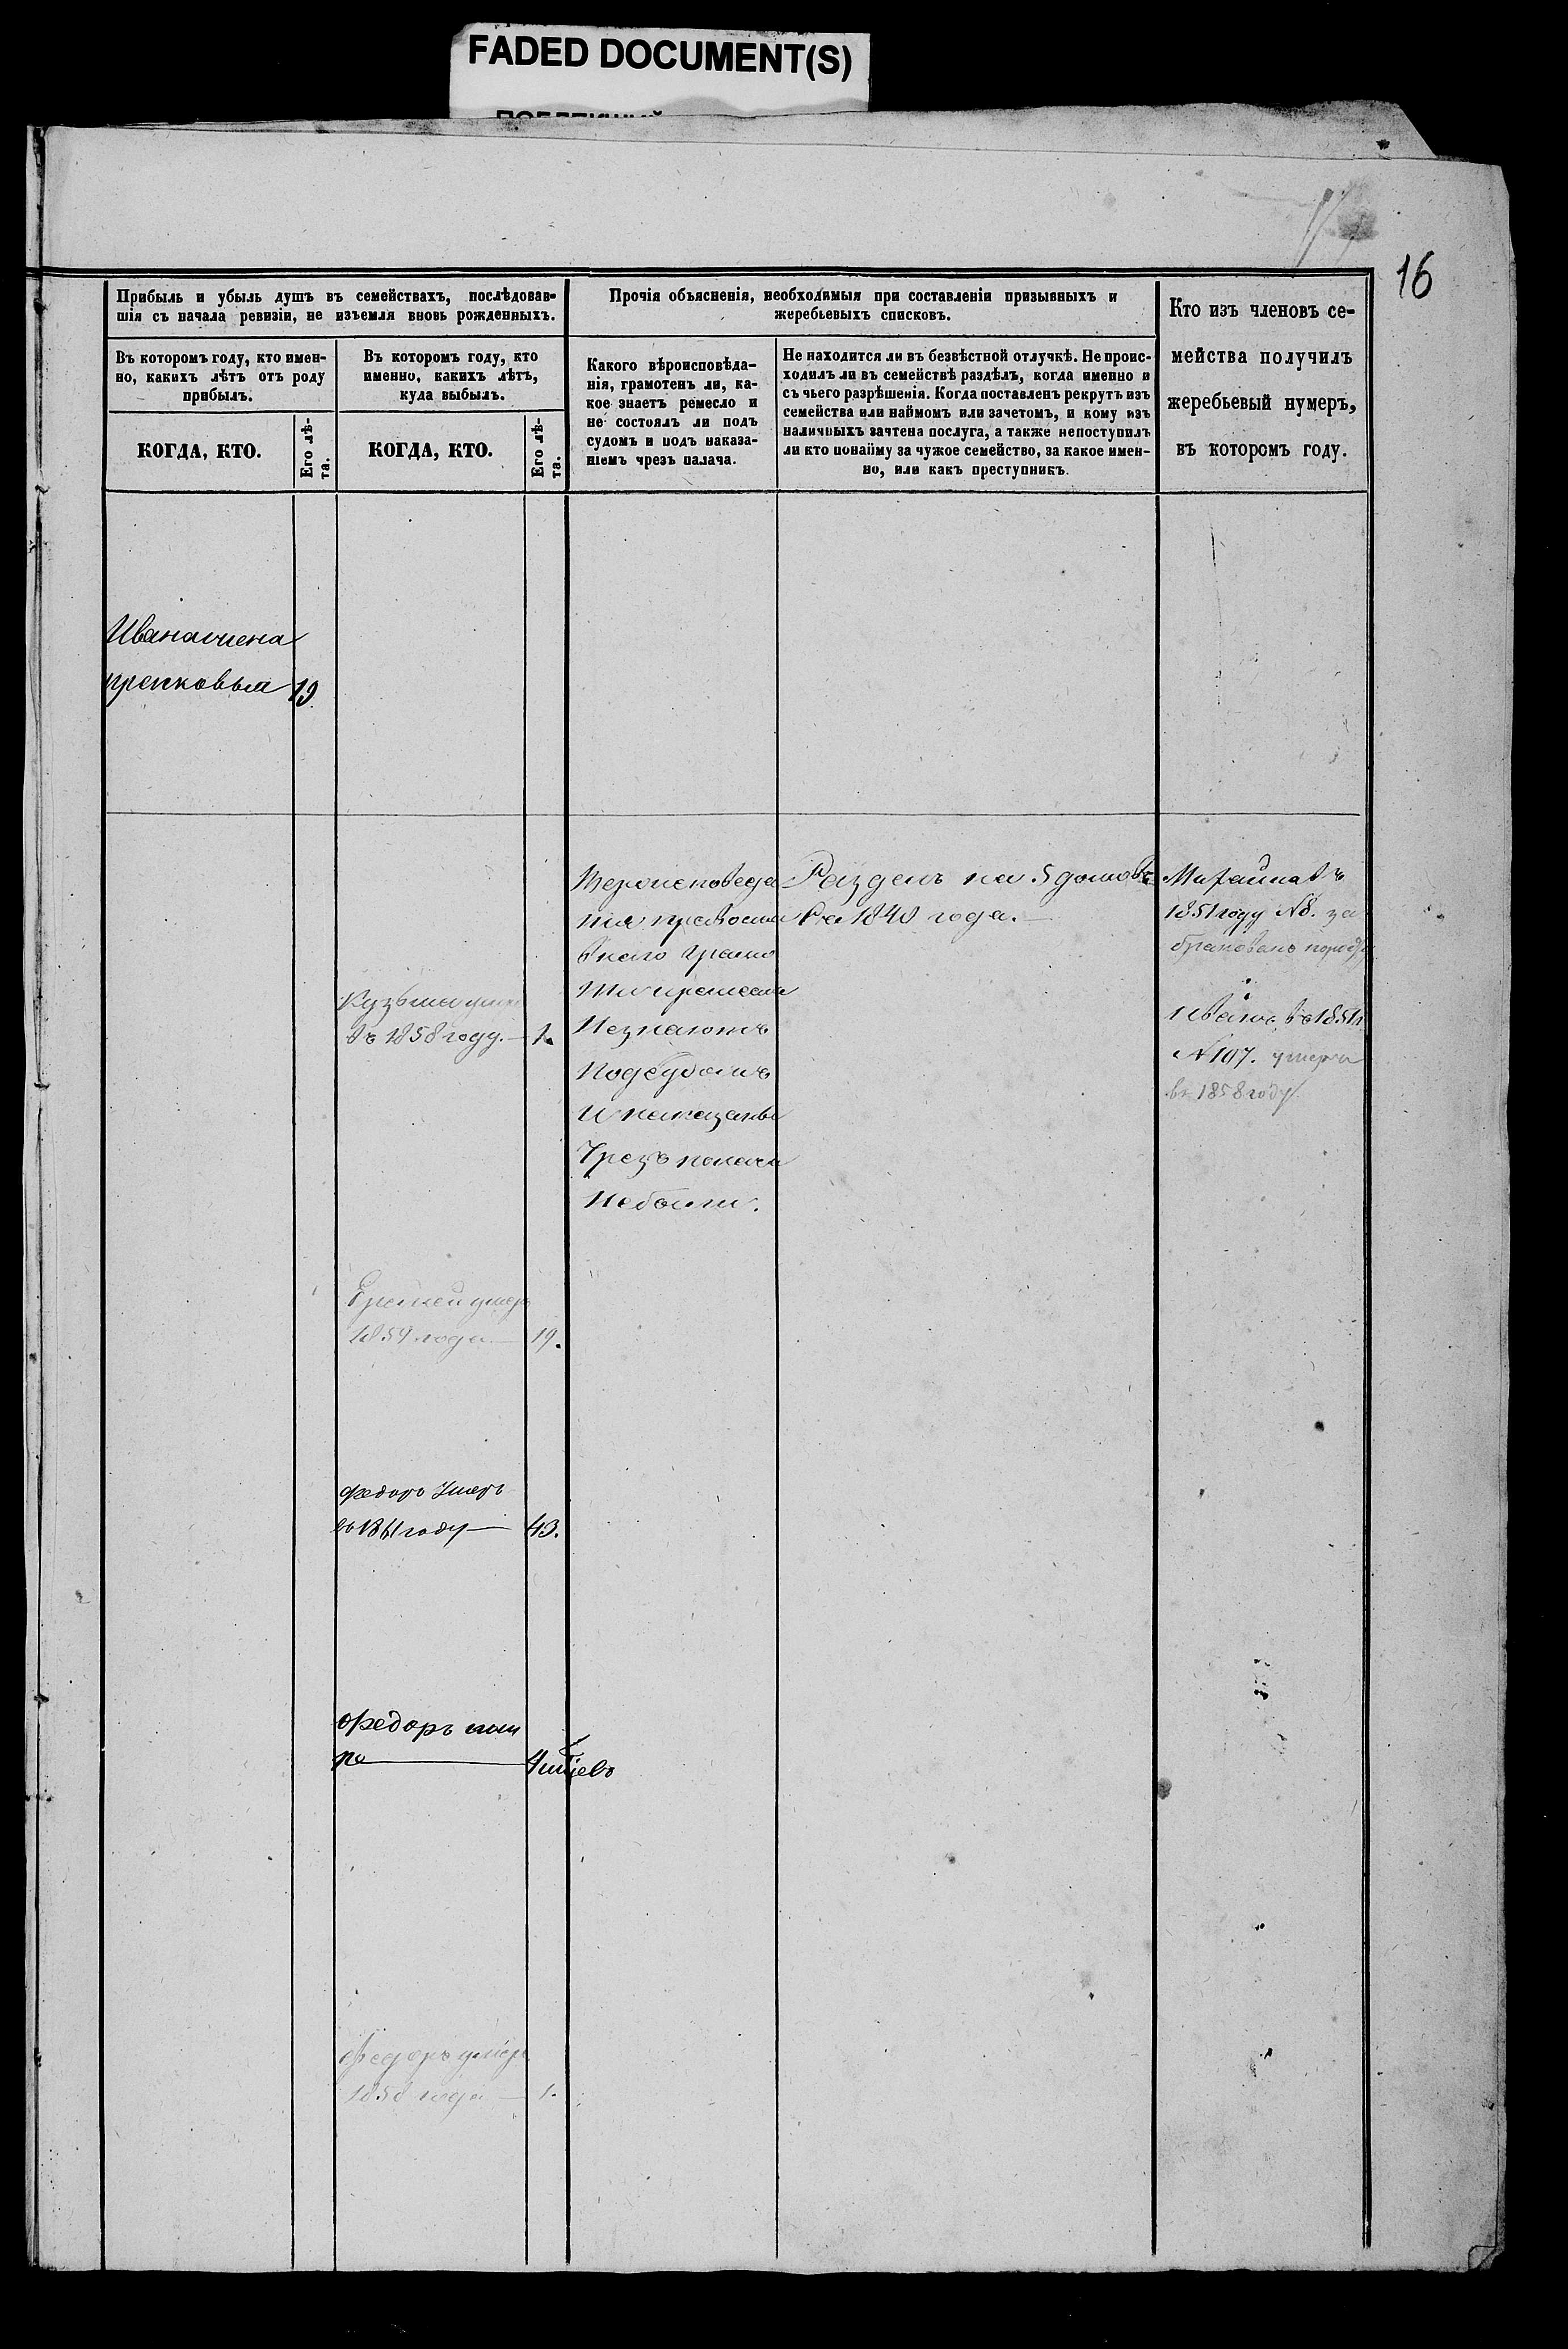 FADED DOCUMENT(S)
16
Прибыль и убыль душъ въ семействахъ, послѣдовав-
шія съ начала ревизіи, не изъемля вновь рожденныхъ.
Въ которомъ году, кто имен-
но, какихъ лѣтъ отъ роду
прибылъ.
КОГДА, КТО.
Его лѣ-
та.
Въ которомъ году, кто
именно, какихъ лѣтъ,
куда выбылъ.
КОГДА, КТО.
Его лѣ-
та.
Прочія объясненія, необходимыя при составленіи призывныхъ и
жеребьевыхъ списковъ.
Какого вѣроисповѣда-
нія, грамотенъ ли, ка-
кое знаетъ ремесло и
не состоялъ ли подъ
судомъ и подъ наказа-
ніемъ чрезъ палача.
Не находится ли въ безвѣстной отлучкѣ. Не проис-
ходилъ ли въ семействѣ раздѣлъ, когда именно и
съ чьего разрѣшенія. Когда поставленъ рекрутъ изъ
семейства или наймомъ или зачетомъ, и кому изъ
наличныхъ зачтена послуга, а также непоступилъ
ли кто понайму за чужое семейство, за какое имен-
но, или какъ преступникъ.
Кто изъ членовъ се-
мейства получилъ
жеребьевый нумеръ,
въ которомъ году.
Ивана жена
19
Вероисповеда
ния правосла
внаго грамо
Незнаютъ
Подсудомъ
И наказаны
Чрезъ палача
Небыли.
Разделъ на 5 домовъ
Съ 1840 года.
въ
1851 году N8. за
бракованъ
Иванъ въ 1851
N 107. умеръ
въ 1858 году
Кузьма умеръ
въ 1858 году. 1.
Еремей умеръ
1859 года 19.
Федоръ Умеръ
въ 1861 году 43.
Федоръ
Федоръ умеръ
1858 года 1.